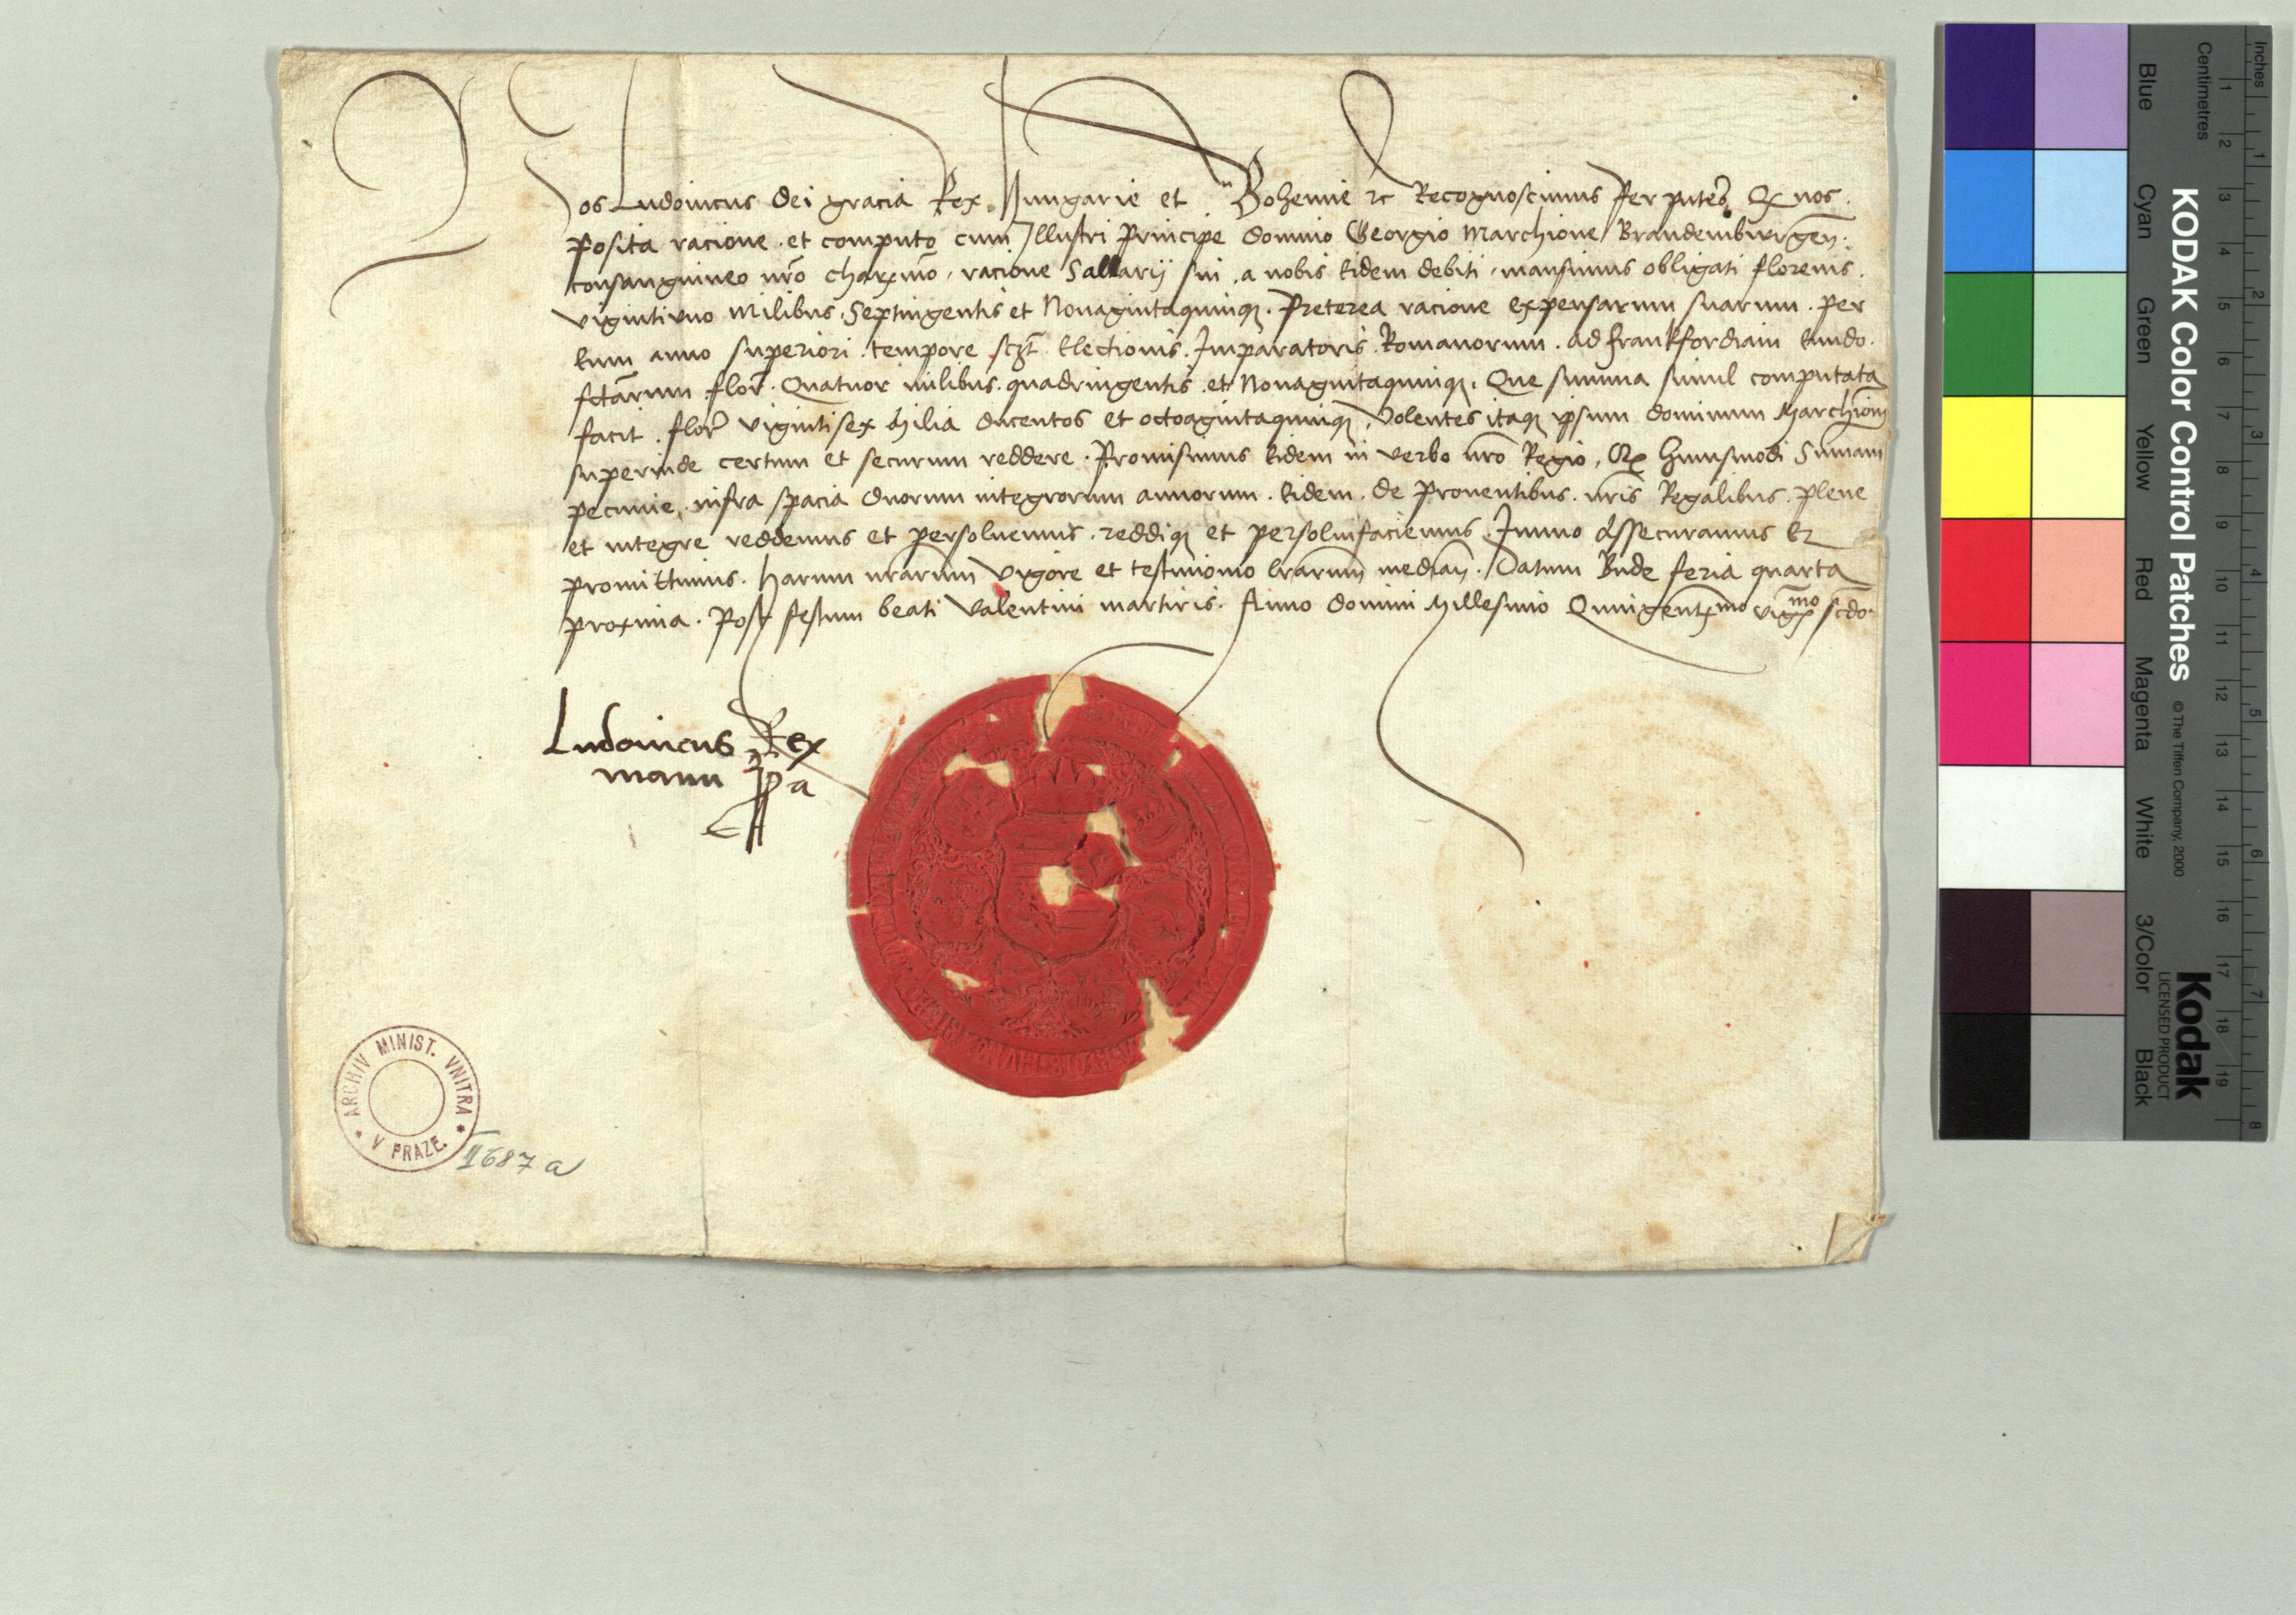 Nos Ludouicus dei gracia Rex Hungarie et Bohemie zc Recognoscimus Per pntes Qz nos.
posita racione et computo cum Illustri Principe domino Georgio Marchione Brandemburgen.
consanguineo nro charmo, racione Sallarij sui a nobis Eidem debiti, mansimus obligati florenis.
vigintivno Milibus Septingentis et Nonagintaquinqz. Preterea racione expensarum suarum. per
Eum anno superiori tempore sczt Electionis Imparatoris Romanorum. ad Frankfordiam Eundo.
fctarum flor. Quatuor milibus quadringentis et Nonagintaquinqz. Que summa simul computata
facit flor vigintisex Milia ducentos et octoagintaquinqz, Volentes itaqz ipsum dominum Marchionem
superinde certum et securum reddere. Promisimus Eidem in verbo nro Regio, Qz huiusmodi Summam
pecunie, infra spacia duorum integrorum annorum. Eidem de prouentibus nris Regalibus plene
et integre reddemus et persoluemus. reddiqz et persoluifaciemus. Immo Assecuramus Et
promittimus. harum nrarum vigore et testimonio lrarum median. Datum Bude feria quarta
proxima. Post festum beati Valentini martiris. Anno domini Millesimo Quingentmo vigmo scdo.
Ludouicus Rex
manu ppa
ARCHIV MINIST. VNITRA
* V PRAZE. *
1687 a
KODAK Color Control Patches © The Tiffen Company, 2000
Kodak
LICENSED PRODUCT
Blue Cyan Green Yellow Red Magenta White 3/Color Black
Inches 1 2 3 4 5 6 7 8
Centimetres 1 2 3 4 5 6 7 8 9 10 11 12 13 14 15 16 17 18 19